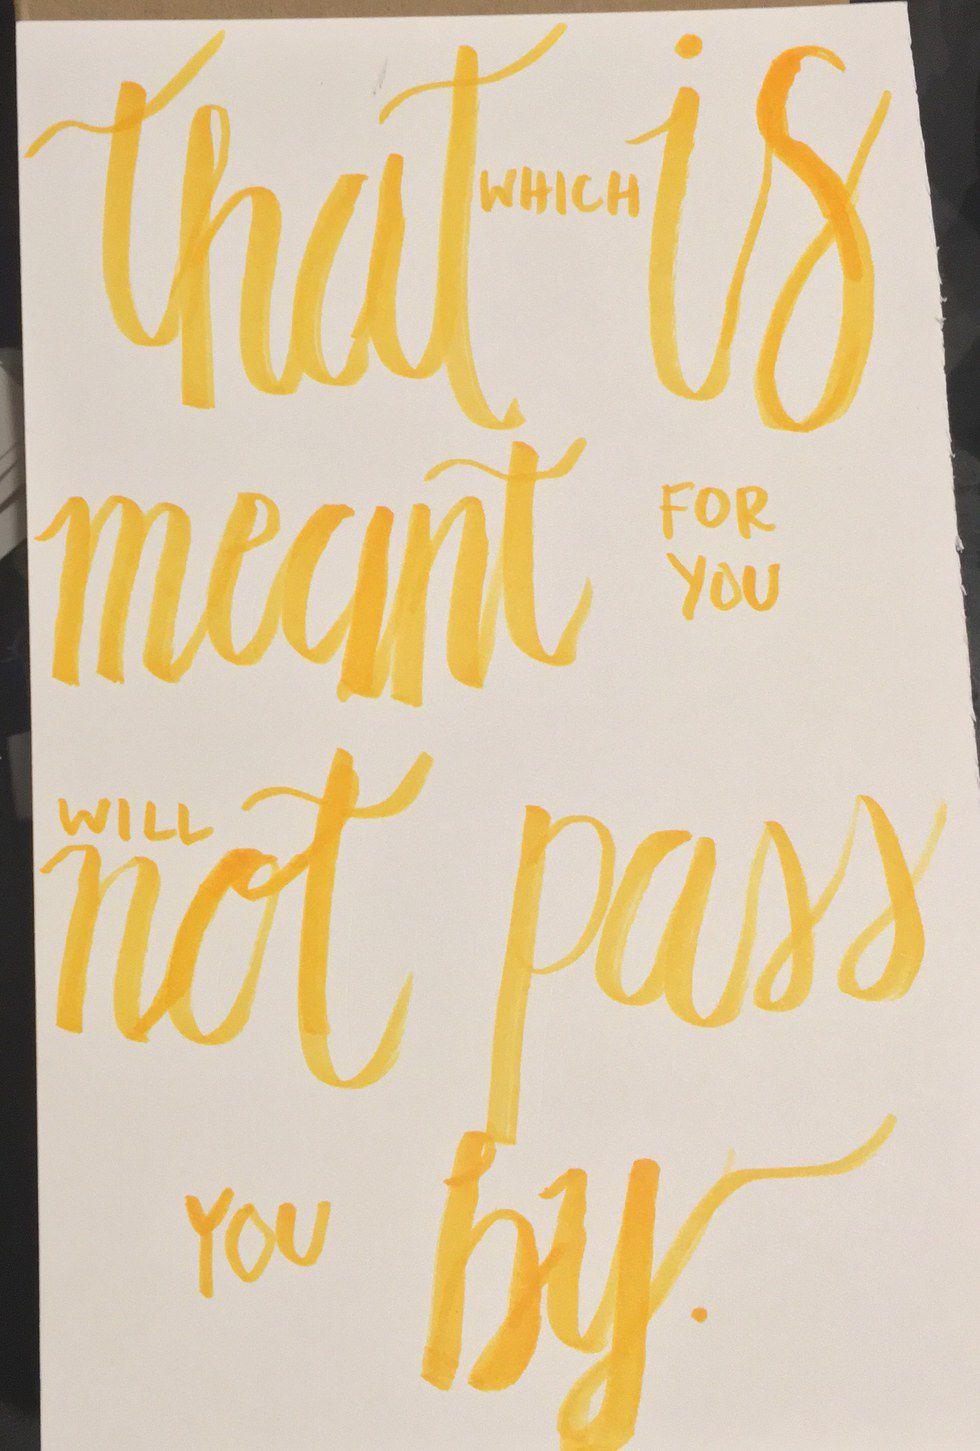 that WHICH is
meant FOR
YOU
WILL
not pass
YOU by.